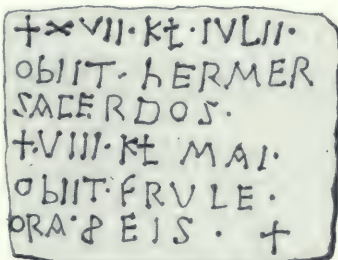 +XVII·Kł·IVLII·
ObIIT·hERMER
SACERDOS·
+VIII·Kł MAI·
ObIIT·FRVLE·
ORA·8 EIS· +